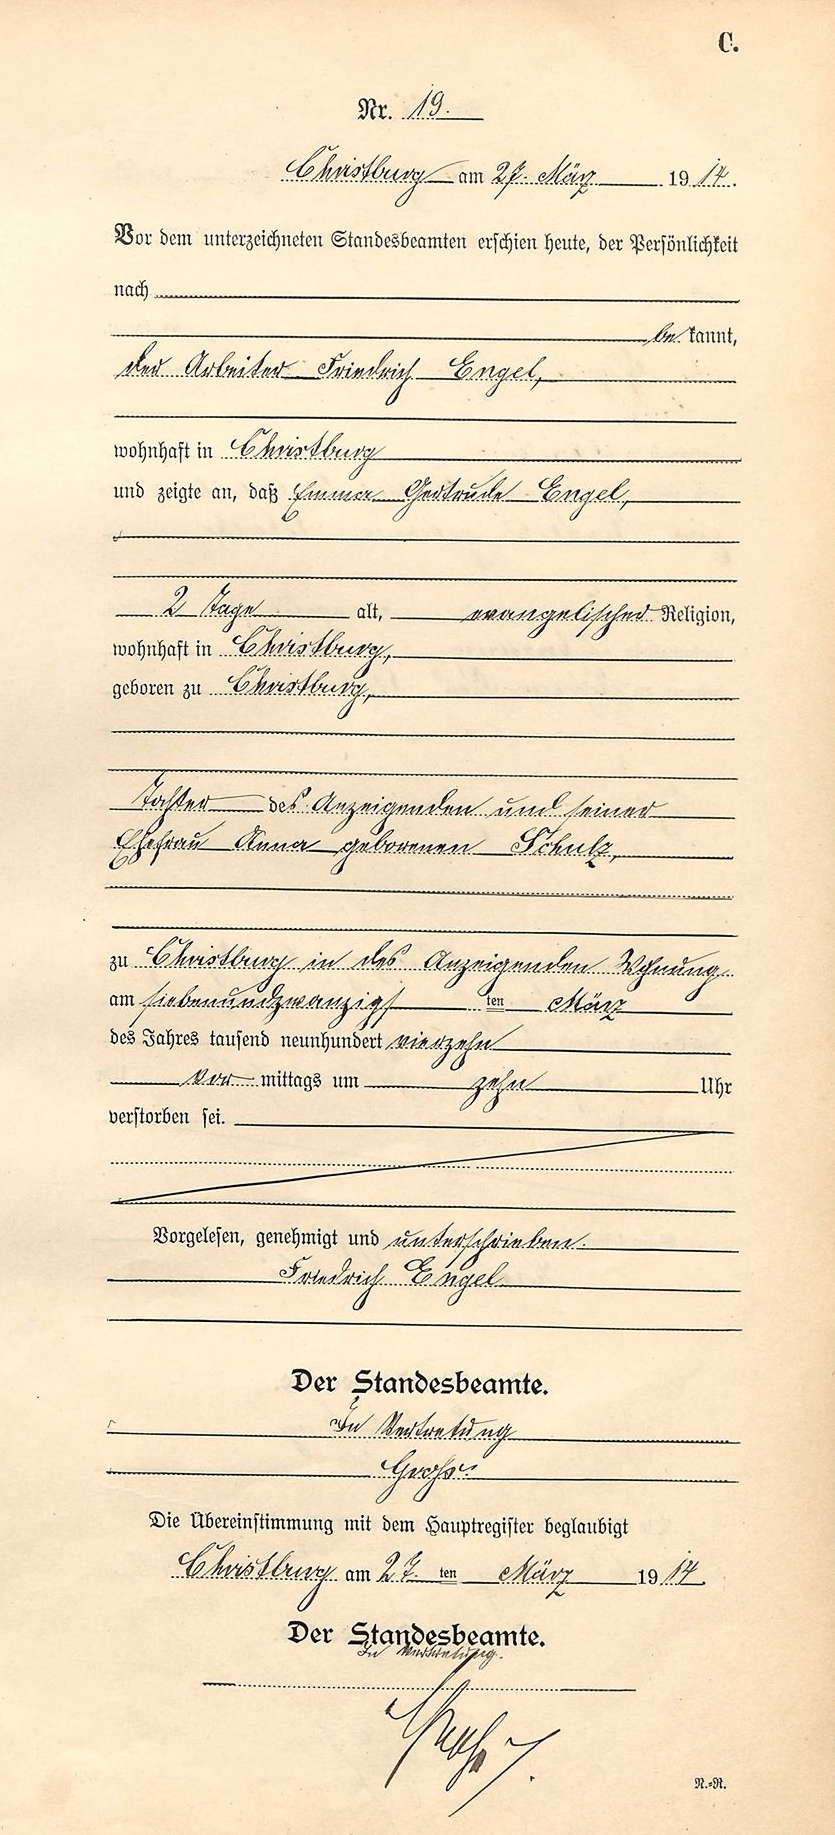 C.
Nr. 19.
Christburg am 27. März 1914.
Vor dem unterzeichneten Standesbeamten erschien heute, der Persönlichkeit
nach
bekannt,
der Arbeiter Friedrich Engel,
wohnhaft in Christburg
und zeigte an, daß Emma Gertrude Engel,
2 Tage alt, evangelischer Religion,
wohnhaft in Christburg,
geboren zu Christburg,
Tochter des Anzeigenden und seiner
Ehefrau Anna geborenen Schulz,
zu Christburg in des Anzeigenden Wohnung
am siebenundzwanzigsten März
des Jahres tausend neunhundert vierzehn
Vormittags um zehn Uhr
verstorben sei.
Vorgelesen, genehmigt und unterschrieben.
Friedrich Engel
Der Standesbeamte.
In Vertretung
Die Übereinstimmung mit dem Hauptregister beglaubigt
Christburg am 27.ten März 1914.
Der Standesbeamte.
In Vertretung.
N.=R.